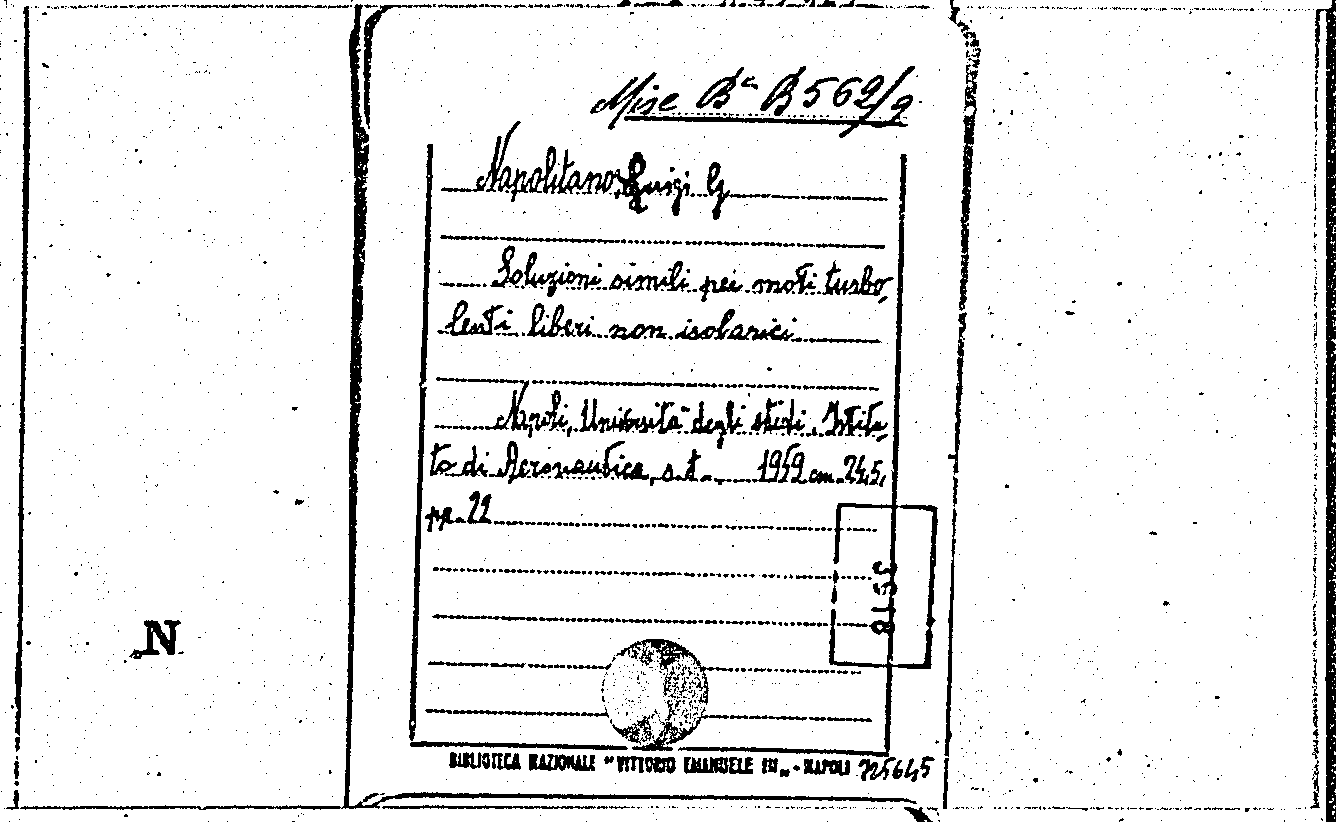 Misc Bᵃ B 562/9
Napolitano, Luigi G
Soluzioni simili pei moti turbo,
lenti liberi non isobarici
Napoli, Università degli studi, Istitu,
to di Aeronautica, s.t. 1959 cm. 24,5,
pp. 22
3518
N
BIBLIOTECA NAZIONALE "VITTORIO EMANUELE III„ - NAPOLI 725645